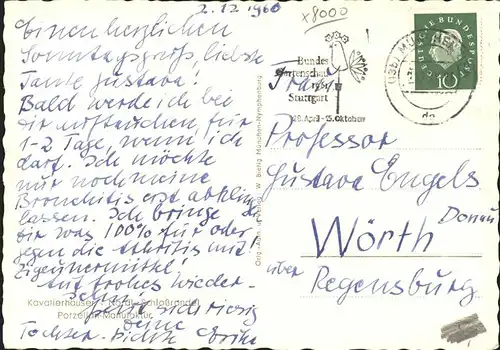 2.12.1960
x8000
Einen herzlichen
Sonntagsgruß, liebste
Tante Gustava!
Bald werde ich bei
Dir auftauchen für
1-2 Tage, wenn ich
darf. Ich möchte
nur noch meine
Bronchitis erst abklingen
lassen. Ich bringe
Dir was 100% für oder
gegen die Arthritis mit
Zigeunermittel!
Auf frohes Wieder-
sehen
freut sich riesig
Deine
Kavalierhäuser - Nördl. Schloßrondell
Porzellan-Manufaktur
Orig.-Aufn. W. Bierig München-Nymphenburg
Bundes
Gartenschau
1961
Stuttgart
28. April - 15. Oktober
DEUTSCHE BUNDESPOST
10
(13b) MÜNCHEN
Frau
Professor
Gustava Engels
Wörth Donau
über Regensburg